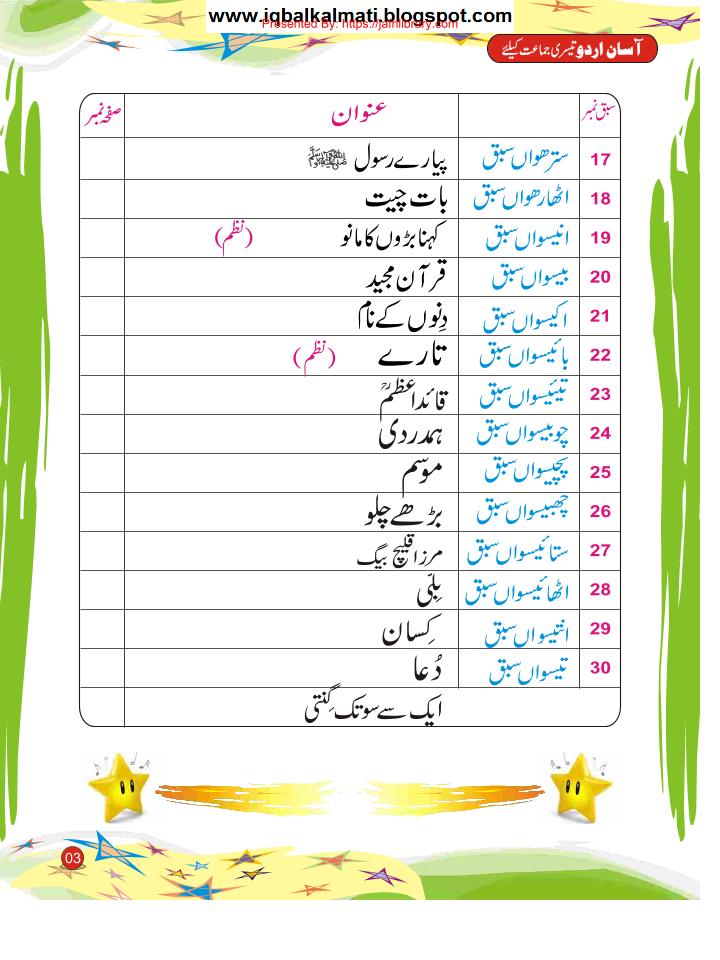 www.iqbalkalmati.blogspot.com
Presented By: https://jafrilibrary.com
آسان اردو تیسری جماعت کیلئے
سبق نمبر عنوان صفحہ نمبر
17 سترھواں سبق پیارے رسول ﷺ
18 اٹھارھواں سبق بات چیت
19 انیسواں سبق کہنا بڑوں کا مانو (نظم)
20 بیسواں سبق قرآن مجید
21 اکیسواں سبق دِنوں کے نام
22 بائیسواں سبق تارے (نظم)
23 تیئیسواں سبق قائداعظمؒ
24 چوبیسواں سبق ہمدردی
25 پچیسواں سبق موسم
26 چھبیسواں سبق بڑھے چلو
27 ستائیسواں سبق مرزا قلیچ بیگ
28 اٹھائیسواں سبق بِلّی
29 انتیسواں سبق کِسان
30 تیسواں سبق دُعا
ایک سے سو تک گِنتی
03